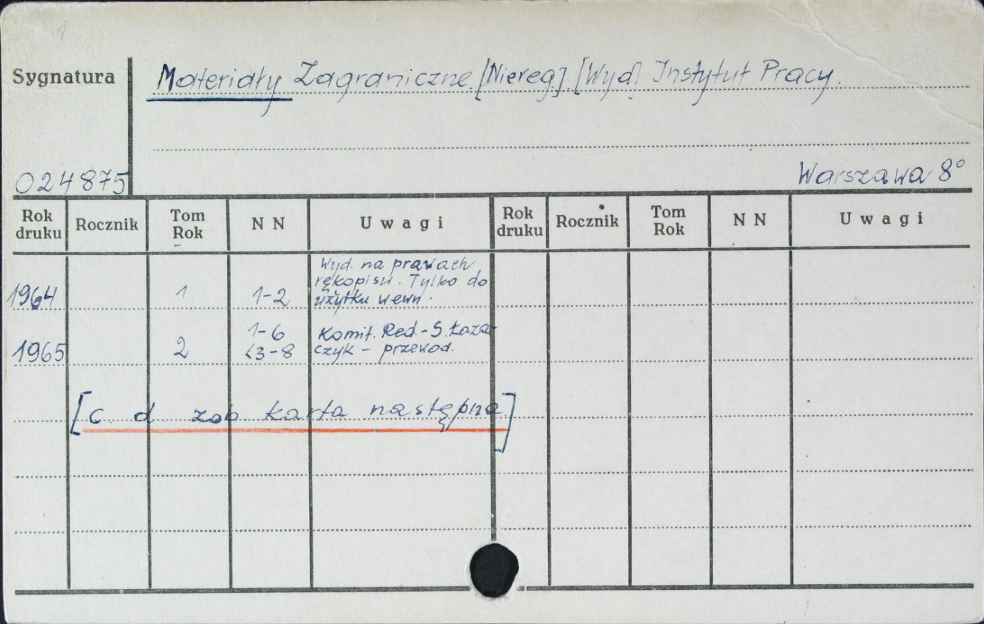 Sygnatura Materiały Zagraniczne. [Niereg]. [Wyd] Instytut Pracy.
024875 Warszawa 8°
Rok druku Rocznik Tom Rok N N Uwagi Rok druku Rocznik Tom Rok N N Uwagi
Wyd. na prawach
rękopisu. Tylko do
1964 1 1-2 użytku wewn.
1-6 Komit. Red-S. Łazar
1965 2 <3-8 czyk - przewod.
[c d zob karta następna]